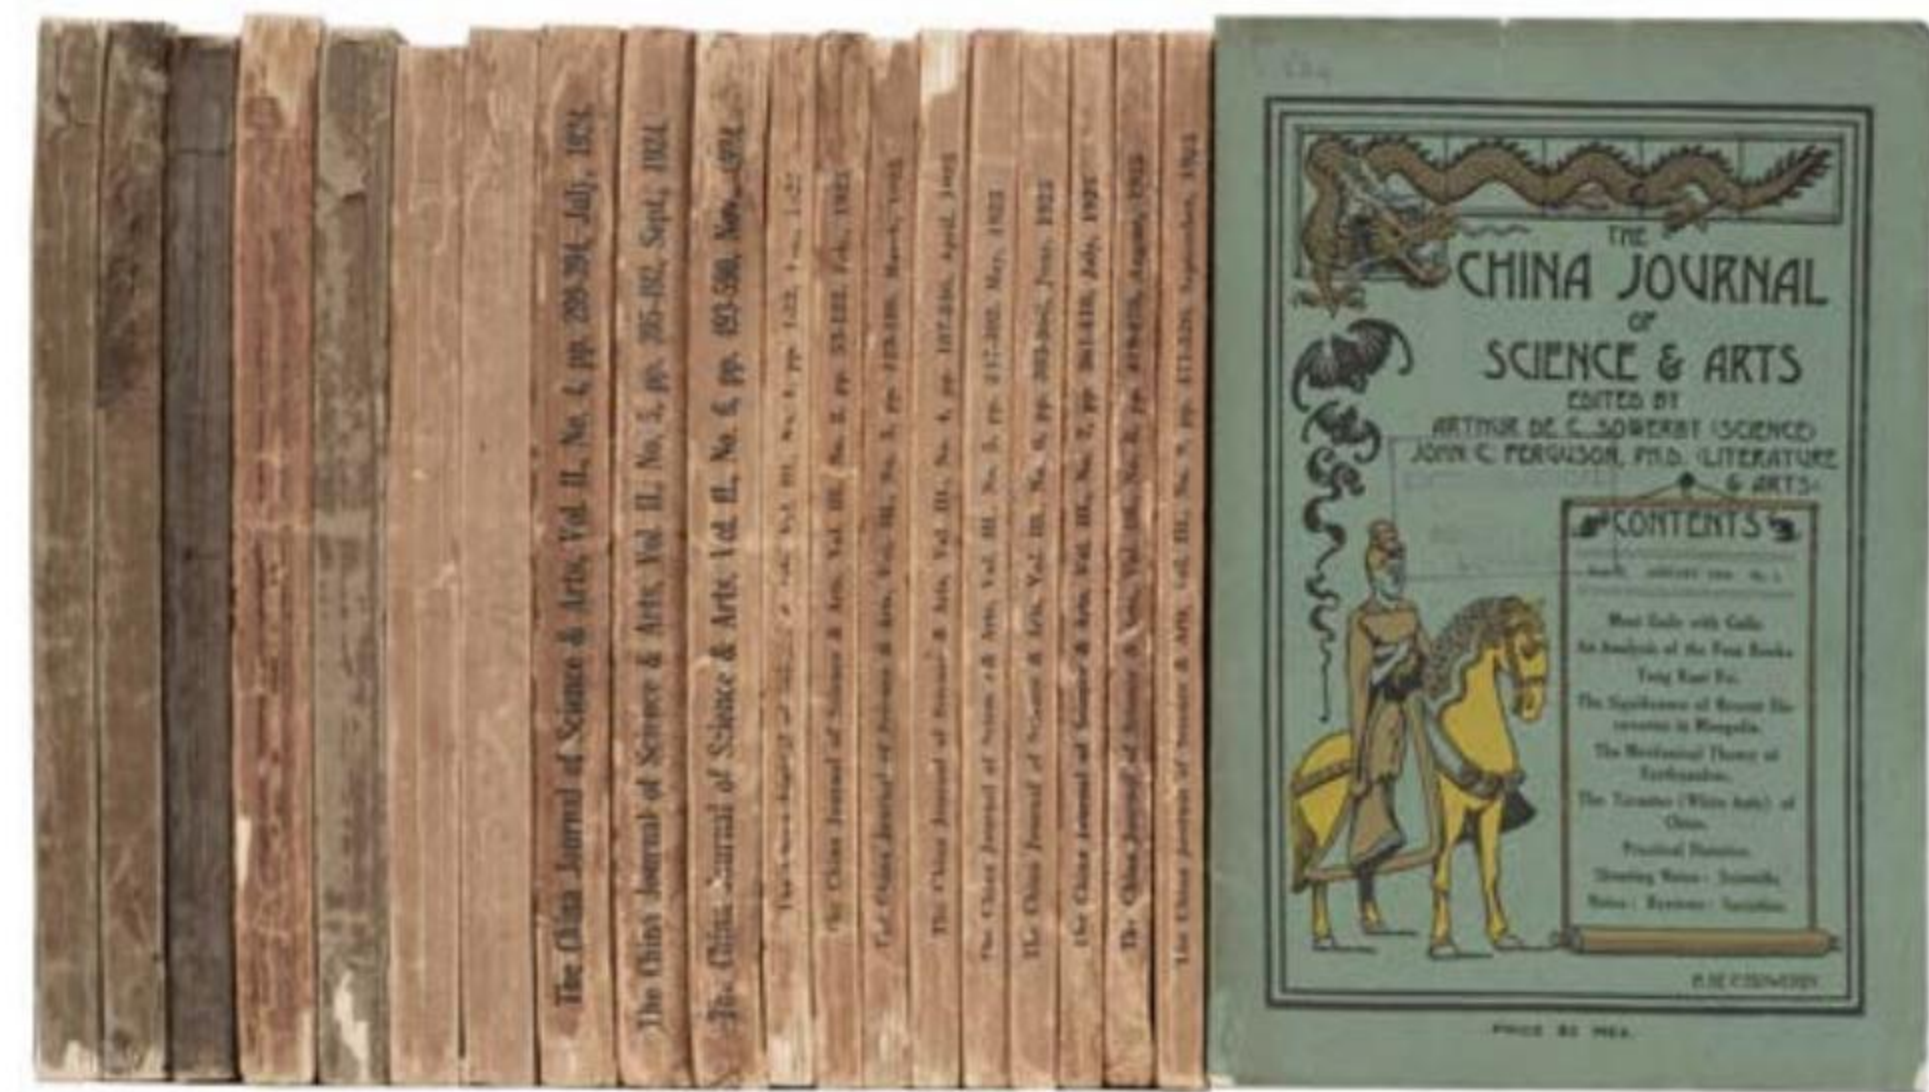 The China Journal of Science & Arts, Vol. II, No. 4, pp. 299-394, July, 1924.
The China Journal of Science & Arts, Vol. II, No. 5, pp. 395-492, Sept., 1924.
The China Journal of Science & Arts, Vol. II, No. 6, pp. 493-590, Nov., 1924.
The China Journal of Science & Arts, Vol. III, No. 2, pp. Feb., 1925
The China Journal of Science & Arts, Vol. III, No. 3, pp. March, 1925
The China Journal of Science & Arts, Vol. III, No. 4, pp. April, 1925
The China Journal of Science & Arts, Vol. III, No. 5, pp. May, 1925
The China Journal of Science & Arts, Vol. III, No. 6, pp. June, 1925
The China Journal of Science & Arts, Vol. III, No. 7, pp. July, 1925
The China Journal of Science & Arts, Vol. III, No. 8, pp. August, 1925
The China Journal of Science & Arts, Vol. III, No. 9, pp. September, 1925
THE
CHINA JOURNAL
OF
SCIENCE & ARTS
EDITED BY
ARTHUR DE C. SOWERBY (SCIENCE)
JOHN C. FERGUSON, PH.D. (LITERATURE
& ARTS)
CONTENTS
An Analysis of the Four Books
Yang Kuei Fei.
The Significance of Recent Dis-
coveries in Mongolia.
The Mechanical Theory of
Earthquakes.
The Termites (White Ants) of
China.
Shooting Notes: Scientific
Notes: Reviews: Societies.
PRICE $2 MEX.